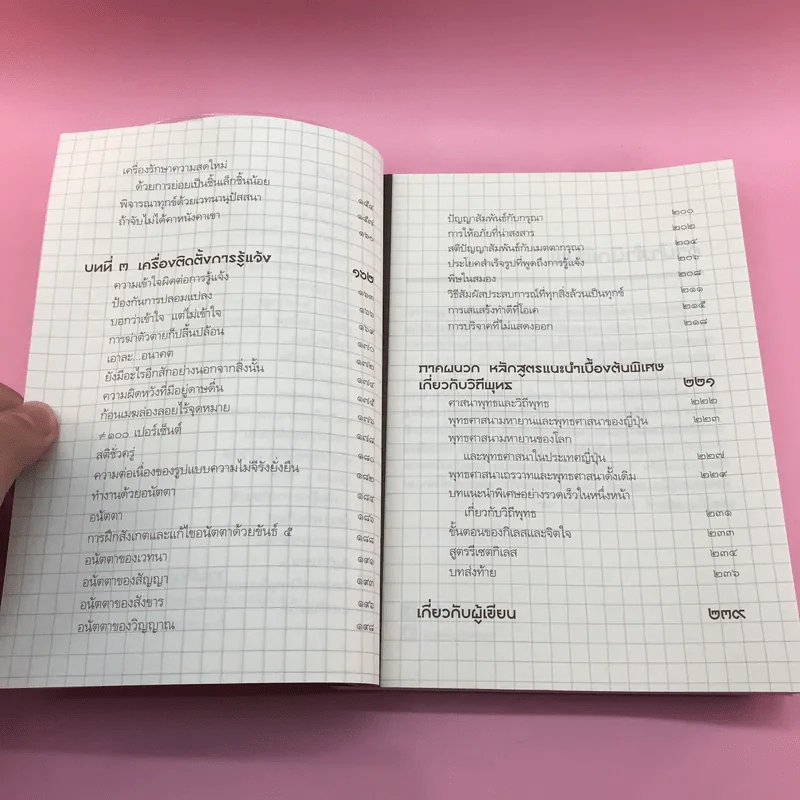 เครื่องรักษาความสดใหม่
ด้วยการย่อยเป็นชิ้นเล็กชิ้นน้อย ๑๕๔
พิจารณาทุกข์ด้วยเวทนานุปัสสนา ๑๕๗
ถ้าจับไม่ได้คาหนังคาเขา ๑๖๐
บทที่ ๓ เครื่องติดตั้งการรู้แจ้ง ๑๖๒
ความเข้าใจผิดต่อการรู้แจ้ง ๑๖๓
ป้องกันการปลอมแปลง ๑๖๖
บอกว่าเข้าใจ แต่ไม่เข้าใจ ๑๖๔
การฆ่าตัวตายก็ปลิ้นปล้อน ๑๗๐
เอาละ...อนาคต ๑๗๒
ยังมีอะไรอีกสักอย่างนอกจากสิ่งนั้น ๑๗๔
ความผิดหวังที่มีอยู่ดาษดื่น ๑๗๕
ก้อนเมฆล่องลอยไร้จุดหมาย ๑๗๖
≠ ๑๐๐ เปอร์เซ็นต์ ๑๗๘
สติชั่วครู่ ๑๘๐
ความต่อเนื่องของรูปแบบความไม่จีรังยั่งยืน ๑๘๒
ทำงานด้วยอนัตตา ๑๘๔
อนัตตา ๑๘๖
การฝึกสังเกตและแก้ไขอนัตตาด้วยขันธ์ ๕ ๑๘๘
อนัตตาของเวทนา ๑๙๑
อนัตตาของสัญญา ๑๙๓
อนัตตาของสังขาร ๑๙๖
อนัตตาของวิญญาณ ๑๙๘
ปัญญาสัมพันธ์กับกรุณา ๒๐๐
การให้อภัยที่น่าสงสาร ๒๐๒
สติปัญญาสัมพันธ์กับเมตตากรุณา ๒๐๔
ประโยคสำเร็จรูปที่พูดถึงการรู้แจ้ง ๒๐๖
พิษในสมอง ๒๐๘
วิธีสัมผัสประสบการณ์ที่ทุกสิ่งล้วนเป็นทุกข์ ๒๑๑
การเสแสร้งทำดีที่โอเค ๒๑๕
การบริจาคที่ไม่แสดงออก ๒๑๘
ภาคผนวก หลักสูตรแนะนำเบื้องต้นพิเศษ
เกี่ยวกับวิถีพุทธ ๒๒๑
ศาสนาพุทธและวิถีพุทธ ๒๒๒
พุทธศาสนามหายานและพุทธศาสนาของญี่ปุ่น ๒๒๓
พุทธศาสนามหายานของโลก
และพุทธศาสนาในประเทศญี่ปุ่น ๒๒๗
พุทธศาสนาเถรวาทและพุทธศาสนาดั้งเดิม ๒๒๙
บทแนะนำพิเศษอย่างรวดเร็วในหนึ่งหน้า
เกี่ยวกับวิถีพุทธ ๒๓๑
ขั้นตอนของกิเลสและจิตใจ ๒๓๓
สูตรรีเซตกิเลส ๒๓๔
บทส่งท้าย ๒๓๖
เกี่ยวกับผู้เขียน ๒๓๙